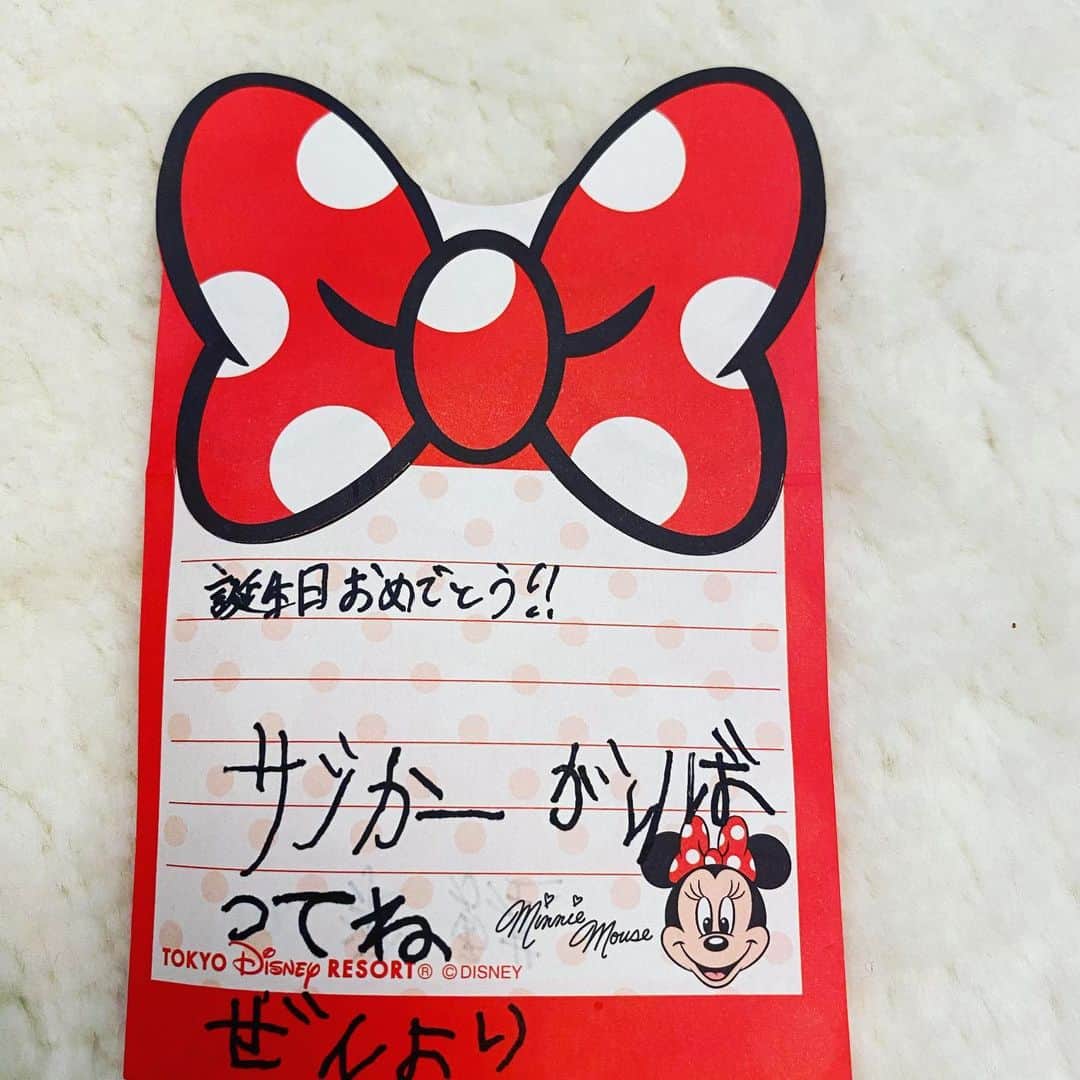 誕生日おめでとう!!
サッカー がんば
ってね
Minnie Mouse
TOKYO Disney RESORT® ©DISNEY
ぜんより